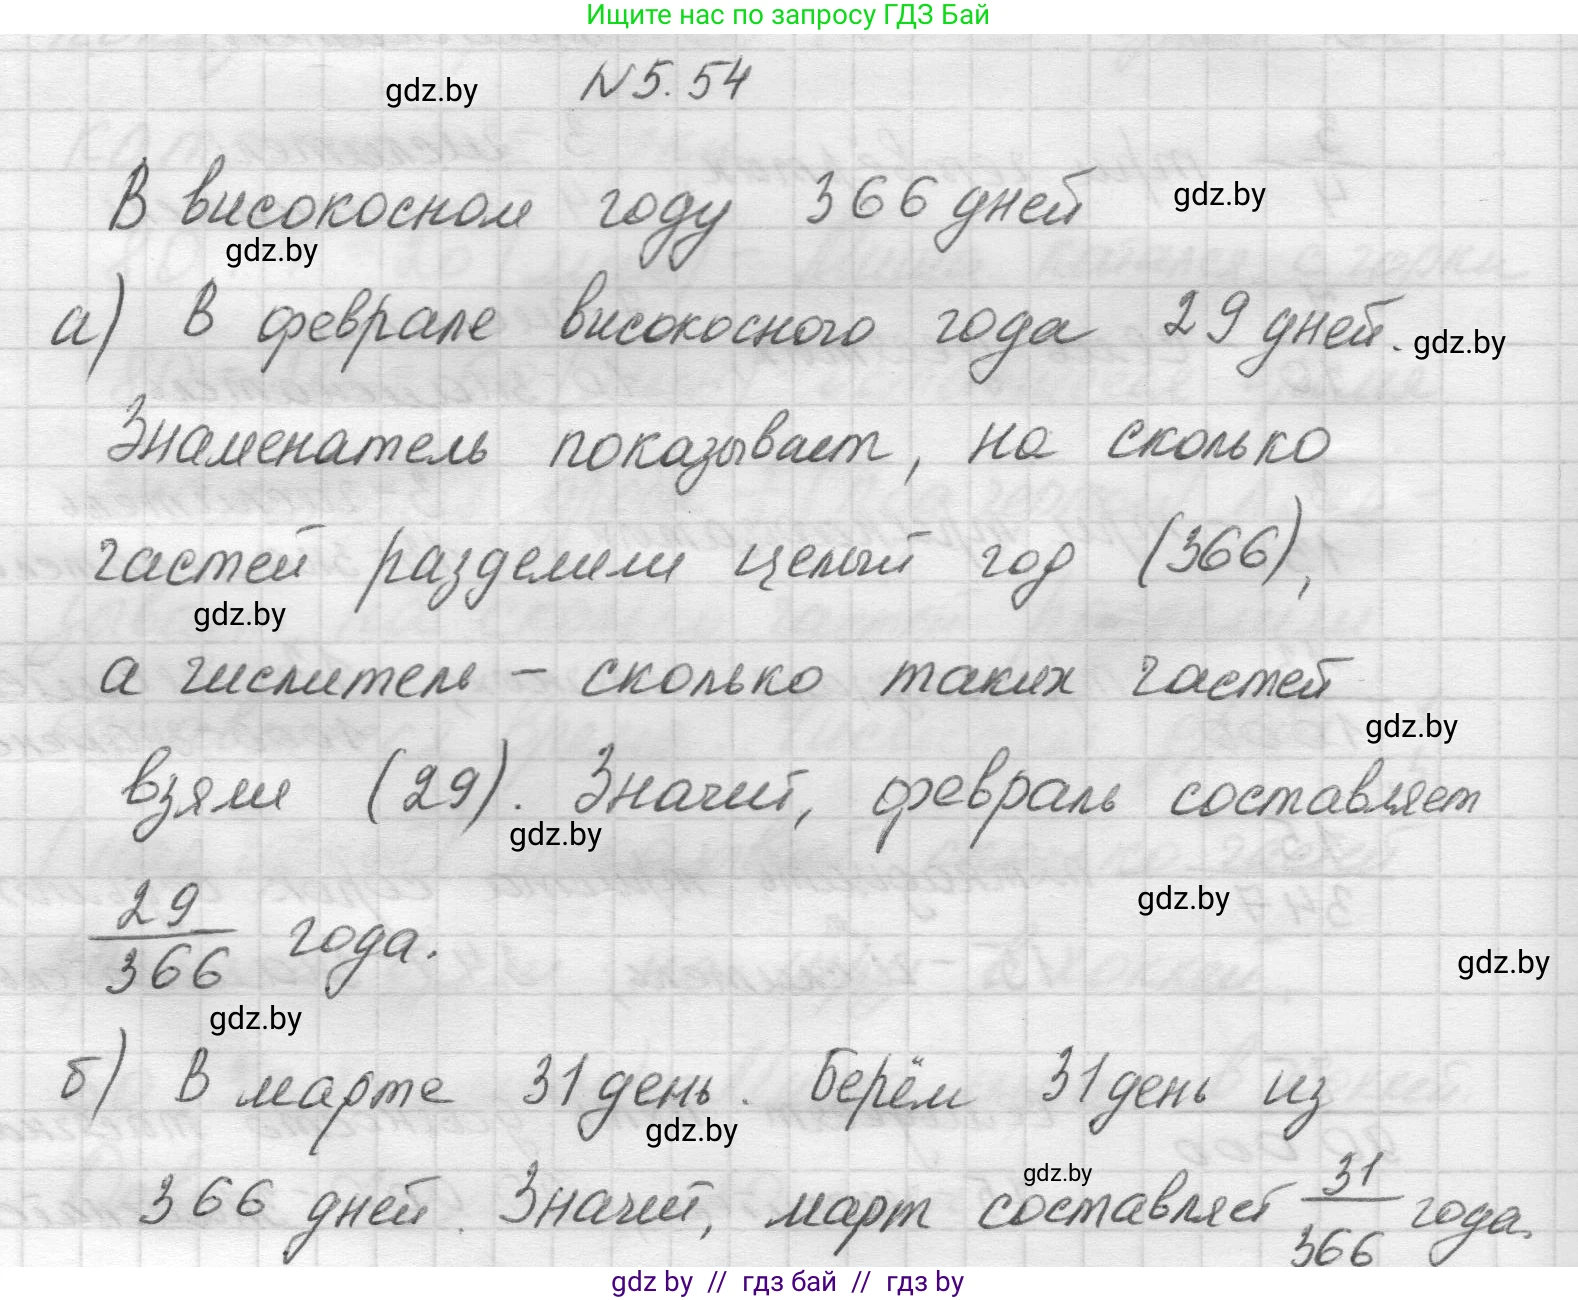 Ищите нас по запросу ГДЗ Бай
gdz.by
N 5.54
В високосном году 366 дней
gdz.by
gdz.by
а) В феврале високосного года 29 дней.
gdz.by
Знаменатель показывает, на сколько
частей разделили целый год (366),
gdz.by
а числитель – сколько таких частей
gdz.by
взяли (29). Значит, февраль составляет
gdz.by
gdz.by
29/366 года.
gdz.by
gdz.by
б) В марте 31 день. Берём 31 день из
gdz.by
gdz.by
366 дней. Значит, март составляет 31/366 года.
gdz by // гдз бай // гдз by